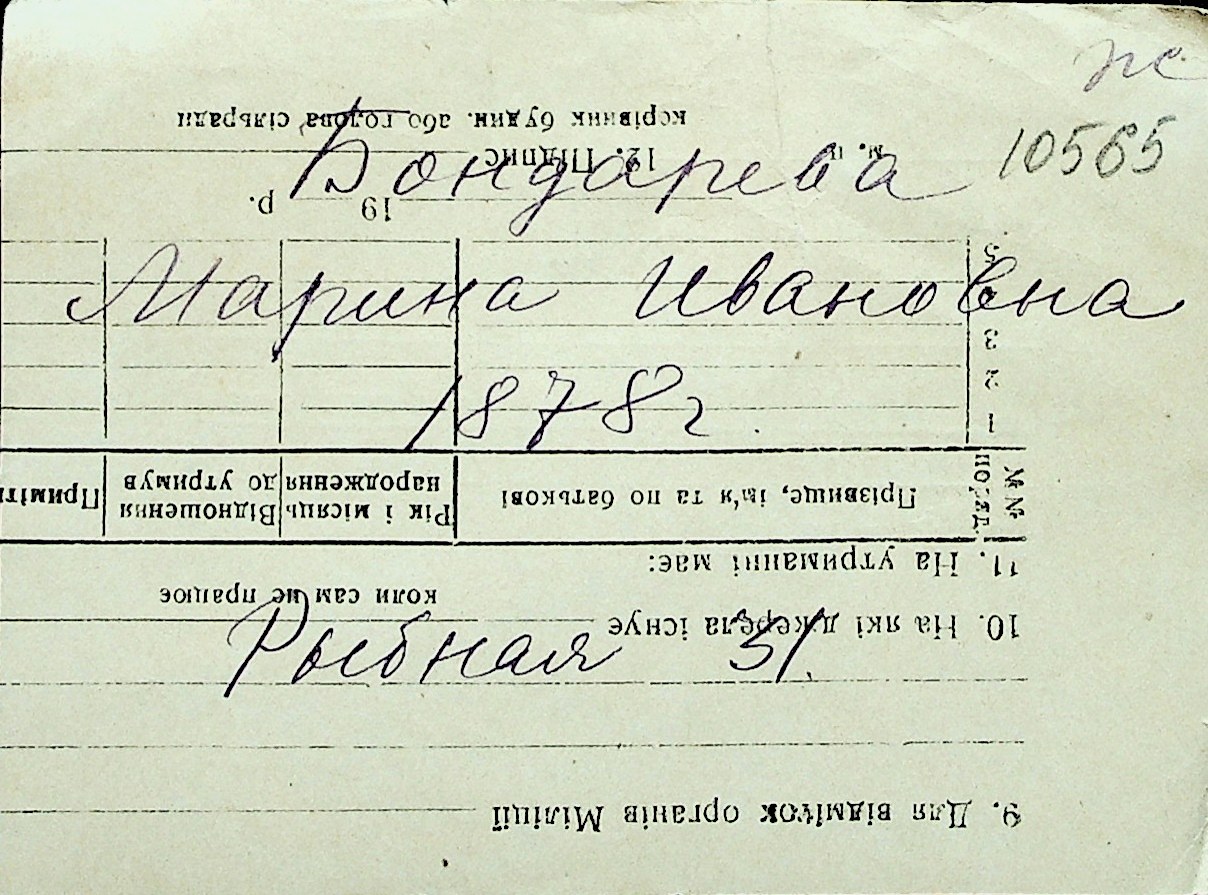 же
10565
Бондарева
Марина Ивановна
1878г.
Рыбная 31
9. Для відміток органів Міліції
10. На які джерела існує
коли сам не працює
11. На утриманні має:
№№ поряд. Прізвище, ім'я та по батькові Рік і місяць народження Відношення до утримув Приміти
1
2
3
5
19 р.
12. Підпис
м. п.
керівник будин. або голова сільради